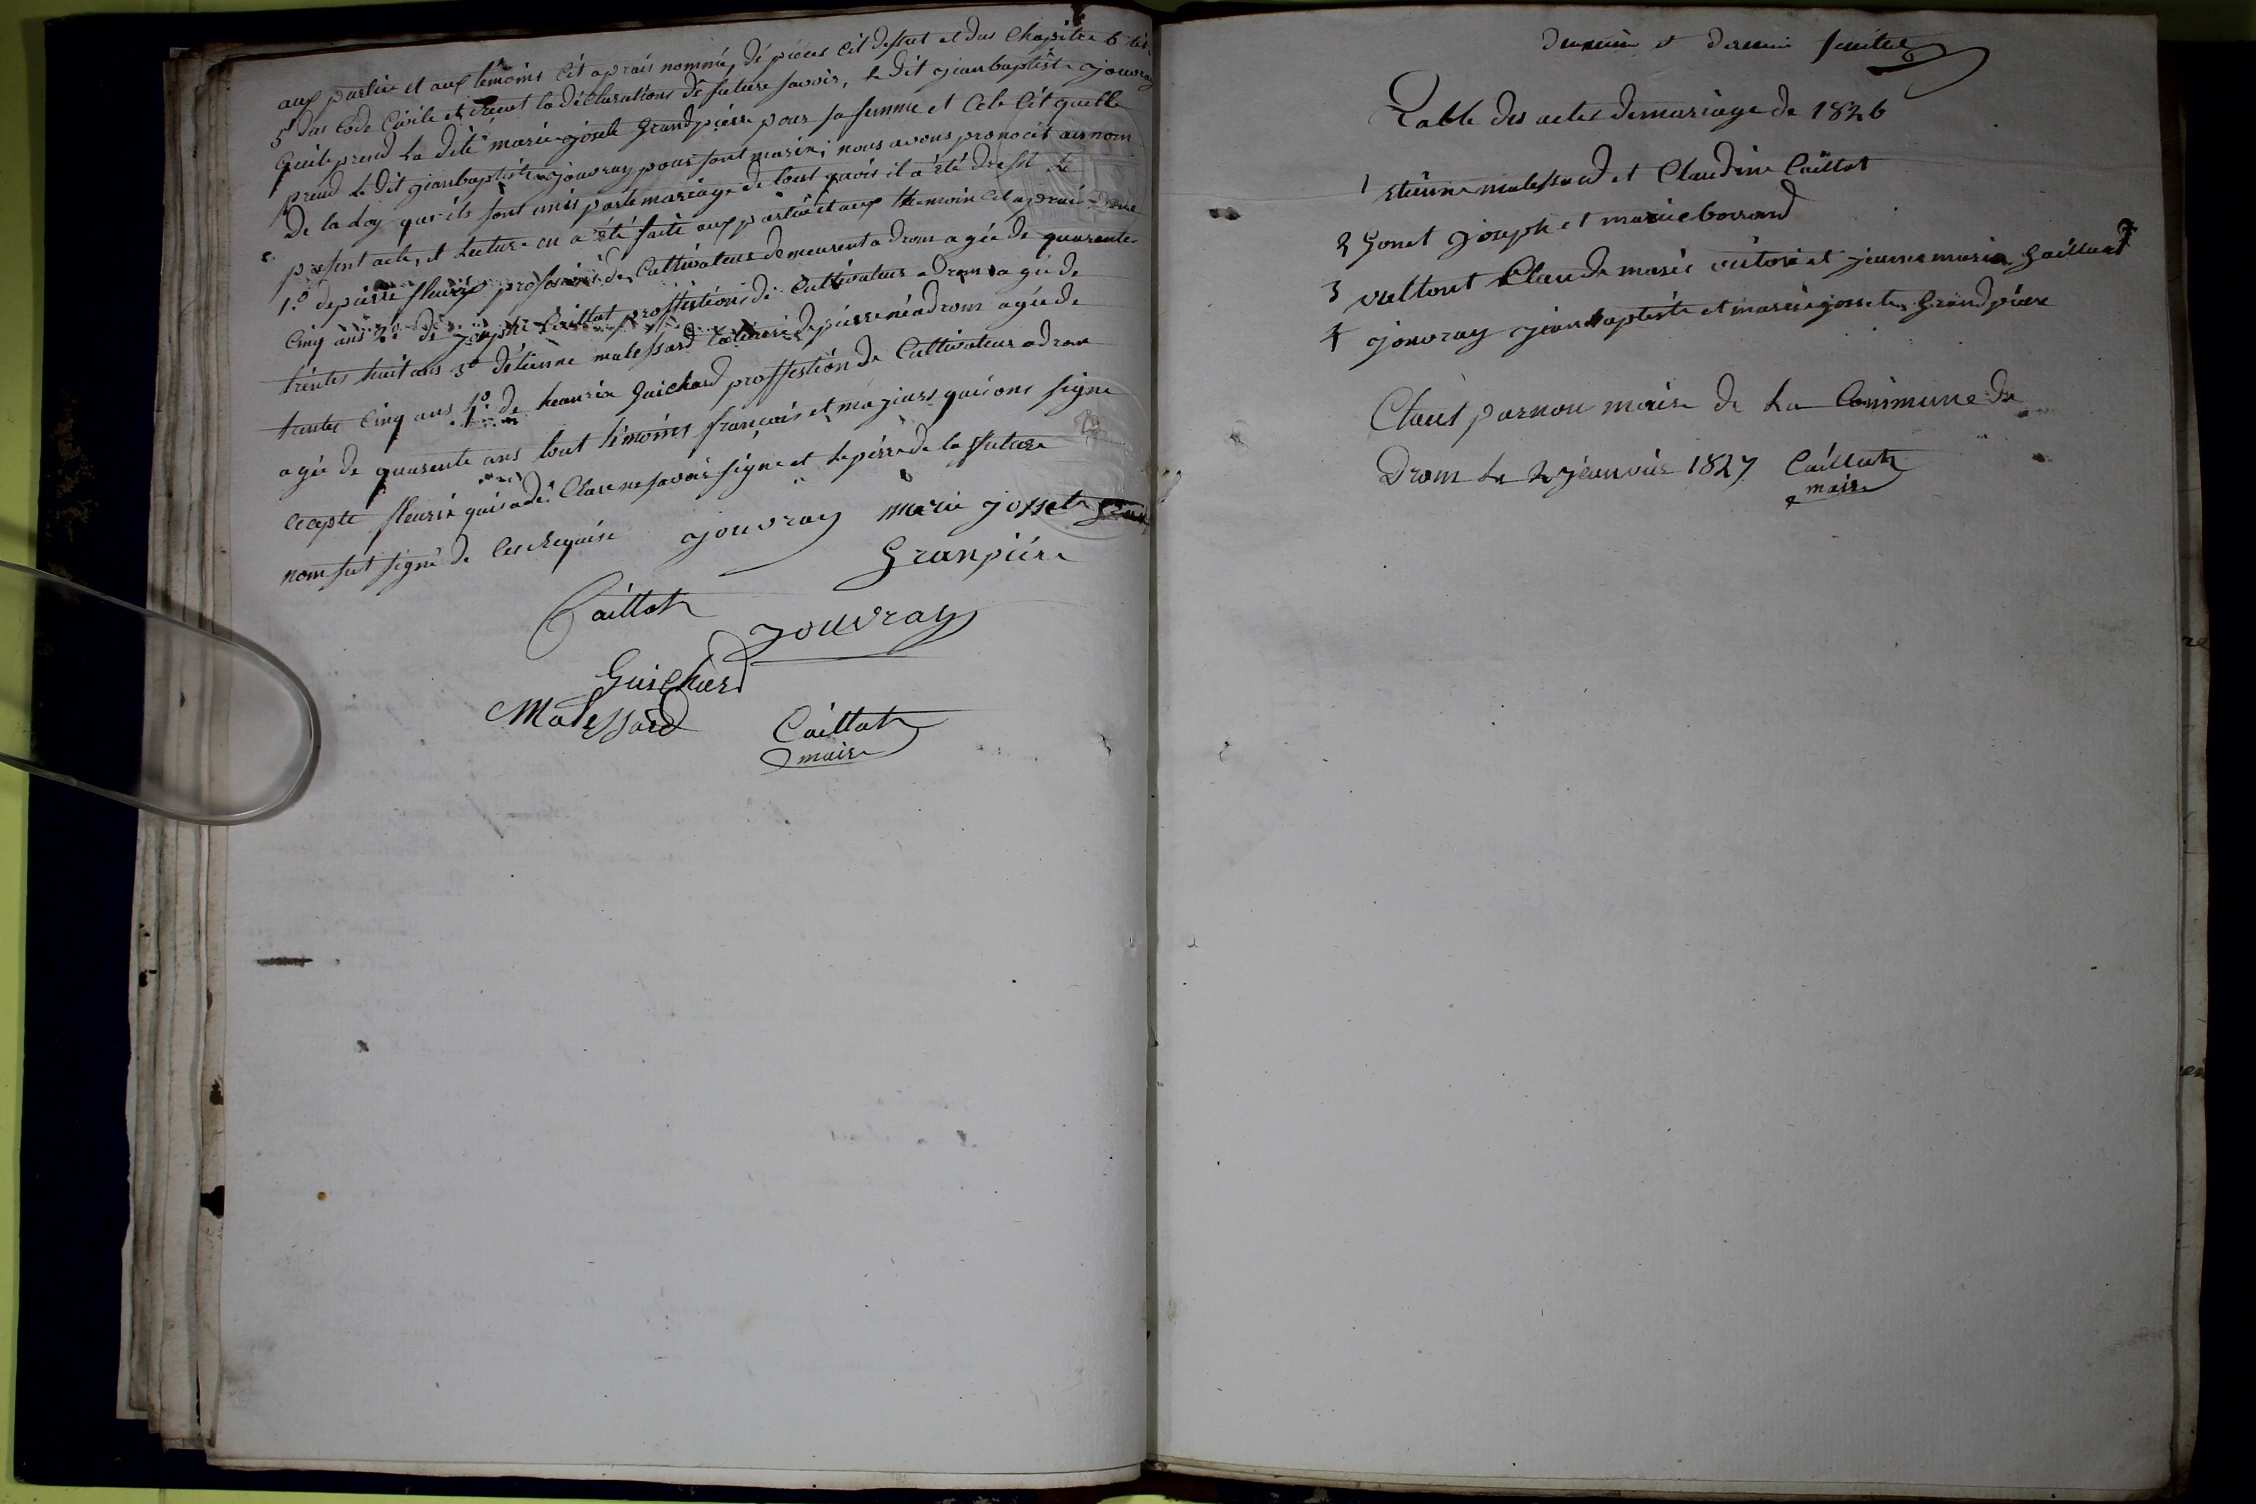 aux partie et aux témoins cit aprais nommé, dé pièces cit dessut et dus Chapitre 6 tit
5 dus Code Civile et recut la déclarations dé future savoir, le dit jeanbaptiste jouvray
quile prend la dite marie josete Grandpierre pour sa femme et cele cit quelle
prend le dit jeanbaptiste jouvray pour sont marie, nous avons pronocit aus nom
De la loy que ils sont unis par le mariage de tout quoi il a été dressé le
présent acte, et lecture en a été faite aux partie et aux temoin cit aprai
1.º de pierre fleurie profession de Cultivateur demeurent a drom agée de quarente
Cinq ans 2º de joseph Caillat proffestions de Cultivateur a drom agée de
trentes huit ans 3º détienne malessard de pierre né a drom agée de
trentes Cinq ans 4º de heanrie Guichard proffestion de Cultivateur a drom
agée de quarente ans tout témoins francais et majeurs qui ons signe
ecepte fleurie qui a dé Clare ne savoir signe et le père de la future
nom sut signé de ces Requise jouvray marie josset
Granpiére
Caillat
jouvray
Guichard
Malessard
Caillat
maire
et dernier feuillet
Table des actes de mariage de 1826
1 etienne malessard et Claudine Caillat
2 Gonet joseph et marie borrand
3 Claude marie victore et jeanne marie Gaillard
4 jouvray jeanbaptiste et marie josete Grandpière
Claus par nou maire de la Commune de
Drom le 2 jeanvier 1827 Caillat
maire